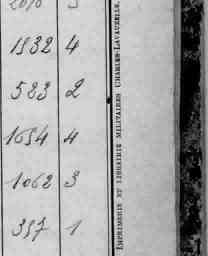 1932 4
583 2
1694 4
1062 3
397 1
IMPRIMERIE ET LIBRAIRIE MILITAIRES CHARLES-LAVAUZELLE.